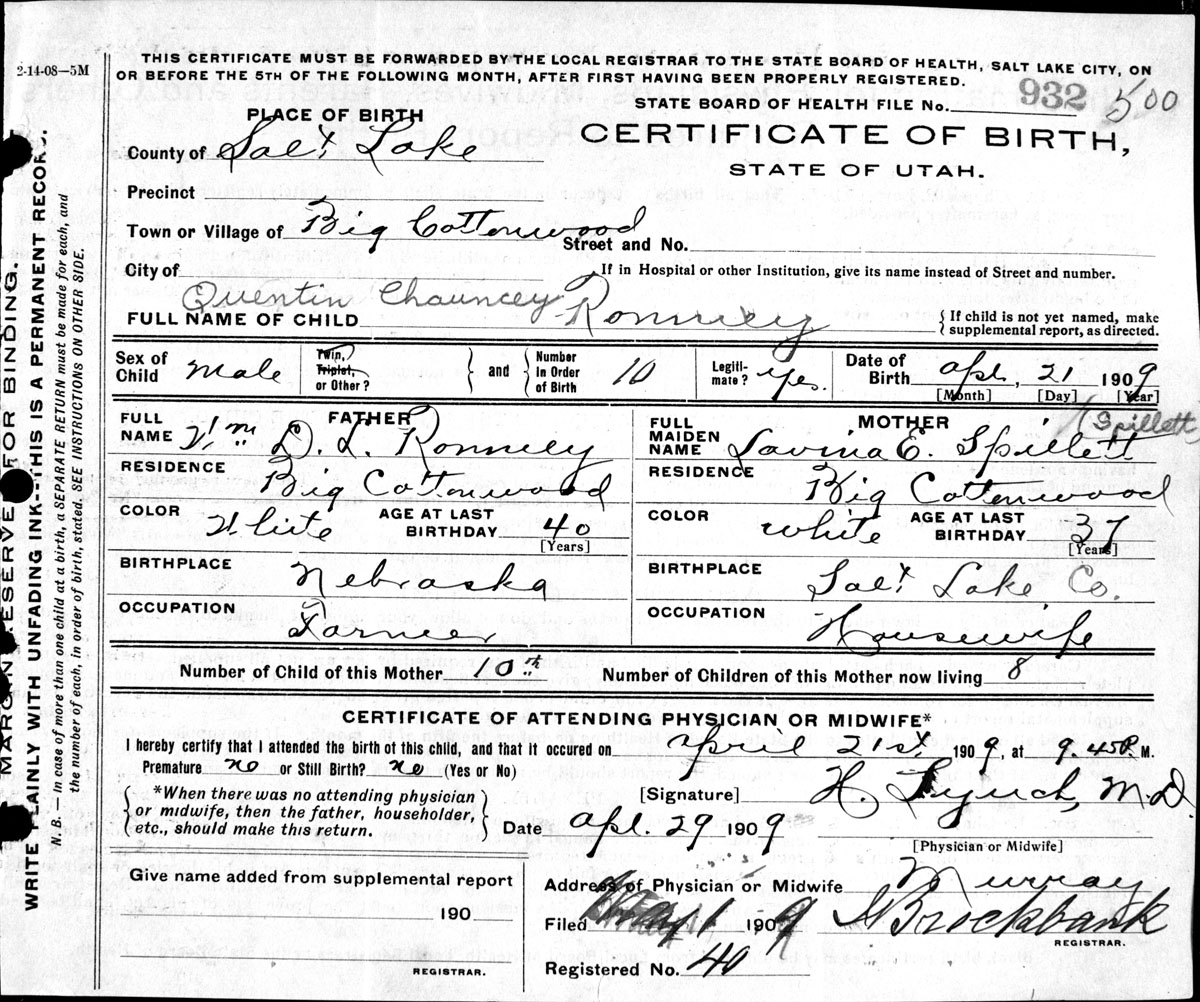 2-14-08—5M
THIS CERTIFICATE MUST BE FORWARDED BY THE LOCAL REGISTRAR TO THE STATE BOARD OF HEALTH, SALT LAKE CITY, ON
OR BEFORE THE 5TH OF THE FOLLOWING MONTH, AFTER FIRST HAVING BEEN PROPERLY REGISTERED.
STATE BOARD OF HEALTH FILE No. 932 500
PLACE OF BIRTH
CERTIFICATE OF BIRTH,
STATE OF UTAH.
County of Salt Lake
Precinct
Town or Village of Big Cottonwood
Street and No.
City of
If in Hospital or other Institution, give its name instead of Street and number.
Quentin Chauncey
FULL NAME OF CHILD Romney
{ If child is not yet named, make
supplemental report, as directed.
Sex of Child Male
Twin, Triplet, or Other? } and { Number in Order of Birth 10
Legiti-mate? Yes.
Date of Birth Apl. 21 1909
[Month] [Day] [Year]
FATHER
FULL NAME Wm D. L. Romney
RESIDENCE Big Cottonwood
COLOR White
AGE AT LAST BIRTHDAY 40
[Years]
BIRTHPLACE Nebraska
OCCUPATION Farmer
MOTHER
(Spillett
FULL MAIDEN NAME Lavina E. Spillett
RESIDENCE Big Cottonwood
COLOR White
AGE AT LAST BIRTHDAY 37
[Years]
BIRTHPLACE Salt Lake Co.
OCCUPATION Housewife
Number of Child of this Mother 10th
Number of Children of this Mother now living 8
CERTIFICATE OF ATTENDING PHYSICIAN OR MIDWIFE*
I hereby certify that I attended the birth of this child, and that it occured on April 21st, 1909, at 9.45 P. M.
Premature no or Still Birth? no (Yes or No)
{ *When there was no attending physician
or midwife, then the father, householder,
etc., should make this return. }
[Signature] H. Lynch, M.D.
Date Apl. 29 1909
[Physician or Midwife]
Give name added from supplemental report
190
REGISTRAR.
Address of Physician or Midwife Murray
Filed May 1 1909 Brockbank
REGISTRAR.
Registered No. 40
MARGIN RESERVED FOR BINDING.
WRITE PLAINLY WITH UNFADING INK---THIS IS A PERMANENT RECORD.
N. B.—In case of more than one child at a birth, a SEPARATE RETURN must be made for each, and
the number of each, in order of birth, stated. SEE INSTRUCTIONS ON OTHER SIDE.